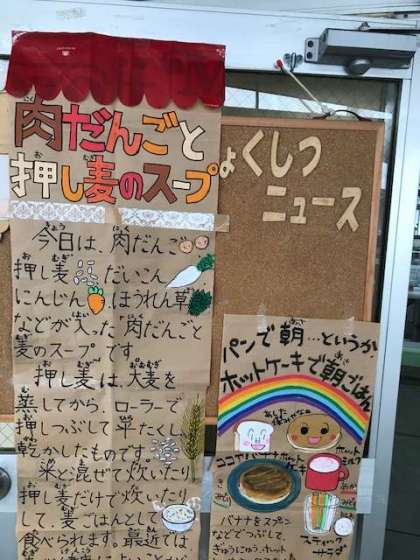 肉だんごと
押し麦のスープ
今日は、肉だんご
押し麦 だいこん
にんじん ほうれん草
などが入った「肉だんごと
麦のスープ」です。
押し麦は、大麦を
蒸してから、ローラーで
押しつぶして平たくし、
乾かしたものです。
米と混ぜて炊いたり、
押し麦だけで炊いたり
して、麦ごはんとして
食べられます。最近では
ょくしつ
ニュース
パンで朝…というか
ホットケーキで朝ごはん
ココアバナナホットケーキ
ホットミルク
バナナをスプーン
などでつぶして、
ぎゅうにゅう、ホット
スティック
サラダ